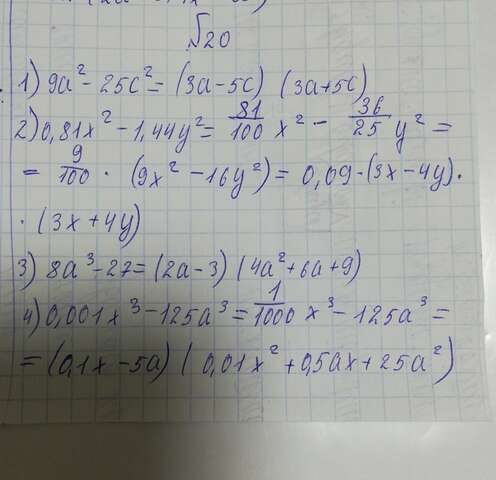 √20
1) 9a² - 25c² = (3a - 5c) (3a + 5c)
2) 0,81x² - 1,44y² = 81/100 x² - 36/25 y² =
= 9/100 · (9x² - 16y²) = 0,09 · (3x - 4y) ·
· (3x + 4y)
3) 8a³ - 27 = (2a - 3) (4a² + 6a + 9)
4) 0,001x³ - 125a³ = 1/1000 x³ - 125a³ =
= (0,1x - 5a) (0,01x² + 0,5ax + 25a²)